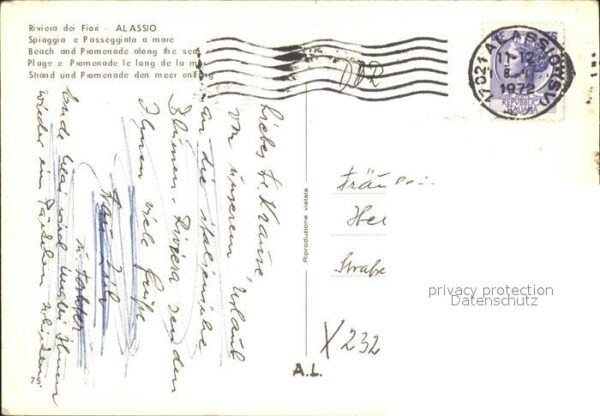 Riviera dei Fiori - ALASSIO
Spiaggia e Passeggiata a mare
Beach and Promenade along the sea
Plage e Promenade le long de la m
Strand und Promenade den meer entlang
17021 ALASSIO (SV)
11-12
8
1972
REPVBBLICA
ITALIANA
Lieber Hr. Krause,
von unserem Urlaub
an die italienische
Blumen-Riviera senden
Ihnen viele Grüße
u. Tochter
Ende Mai wird Ihnen
wieder ein
75
Riproduzione vietata
Fräu
Her
Straße
privacy protection
Datenschutz
X 232
A.L.